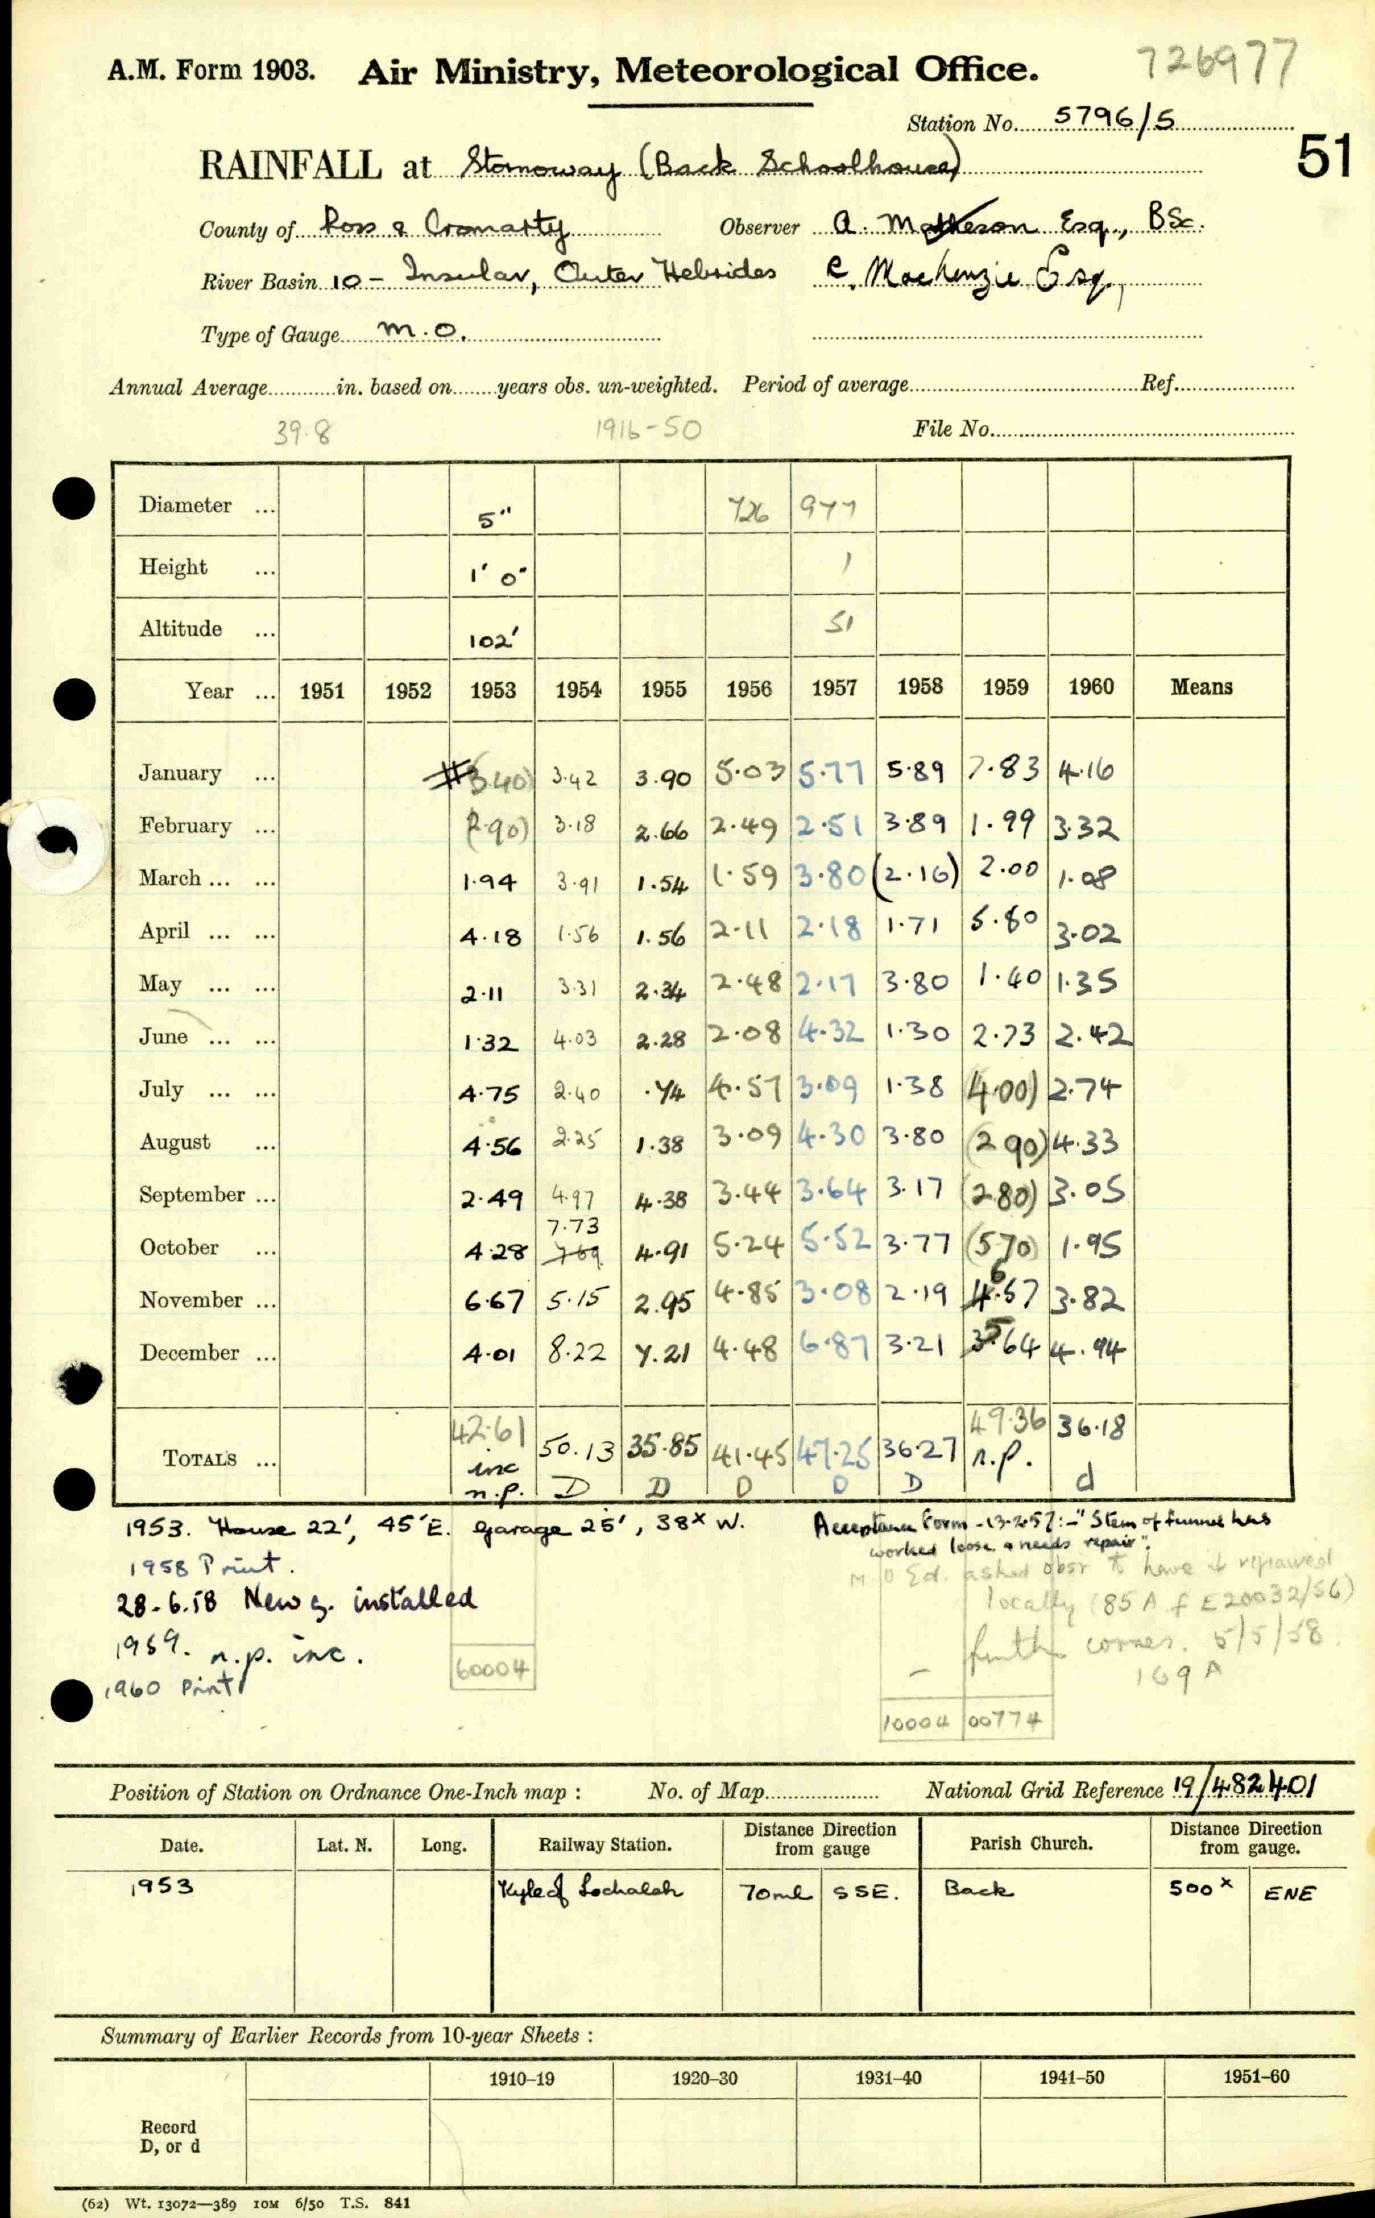 A.M. Form 1903. Air Ministry, Meteorological Office. 726977
Station No. 5796/5
51
RAINFALL at Stornoway (Back Schoolhouse)
County of Ross & Cromarty Observer A. Matheson Esq., BSc.
River Basin 10 - Insular, Outer Hebrides C. MacKenzie Esq.,
Type of Gauge M.O.
Annual Average in. based on years obs. un-weighted. Period of average Ref.
39.8 1916-50 File No.
Diameter ... 5" 726 977
Height ... 1' 0" 1
Altitude ... 102' 51
Year ... 1951 1952 1953 1954 1955 1956 1957 1958 1959 1960 Means
January ... # (3.40) 3.42 3.90 5.03 5.77 5.89 7.83 4.16
February ... (2.90) 3.18 2.66 2.49 2.51 3.89 1.99 3.32
March ... ... 1.94 3.91 1.54 1.59 3.80 (2.16) 2.00 1.08
April ... ... 4.18 1.56 1.56 2.11 2.18 1.71 5.80 3.02
May ... ... 2.11 3.31 2.34 2.48 2.17 3.80 1.40 1.35
June ... ... 1.32 4.03 2.28 2.08 4.32 1.30 2.73 2.42
July ... ... 4.75 2.40 .74 4.57 3.09 1.38 (4.00) 2.74
August ... 4.56 2.25 1.38 3.09 4.30 3.80 (2.90) 4.33
September ... 2.49 4.97 4.38 3.44 3.64 3.17 (2.80) 3.05
7.73
October ... 4.28 7.69 4.91 5.24 5.52 3.77 (5.70) 1.95
6
November ... 6.67 5.15 2.95 4.85 3.08 2.19 4.57 3.82
5
December ... 4.01 8.22 7.21 4.48 6.87 3.21 3.64 4.94
TOTALS ... 42.61 50.13 35.85 41.45 47.25 36.27 49.36 36.18
inc n.p.
n.p. D D D D D d
1953. House 22', 45'E. Garage 25', 38x W. Acceptance Form -13.2.57:- "Stem of funnel has
worked loose & needs repair".
1958 Print. M.O Ed. asked obsr to have it repaired
28.6.58 New g. installed locally (85A f E20032/56)
1959. n.p. inc. furth corres. 5/5/58.
169A
60004
1960 Print
10004 00774
Position of Station on Ordnance One-Inch map : No. of Map National Grid Reference 19/482401
Date. Lat. N. Long. Railway Station. Distance Direction from gauge Parish Church. Distance Direction from gauge.
1953 Kyle of Lochalsh 70ml SSE. Back 500x ENE
Summary of Earlier Records from 10-year Sheets :
1910–19 1920–30 1931–40 1941–50 1951–60
Record
D, or d
(62) Wt. 13072—389 10M 6/50 T.S. 841